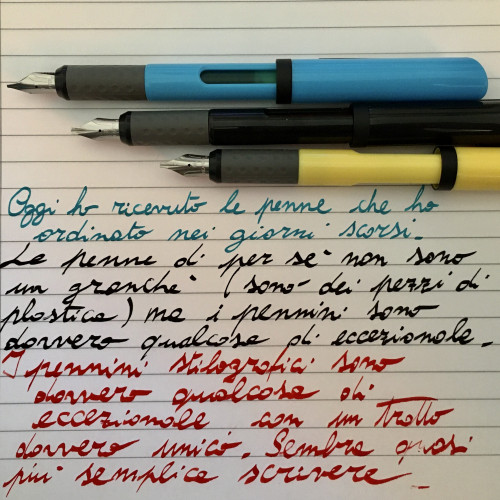 Oggi ho ricevuto le penne che ho
ordinato nei giorni scorsi.
Le penne di per se' non sono
un granche' (sono dei pezzi di
plastica) ma i pennini sono
davvero qualcosa di eccezionale.
I pennini stilografici sono
davvero qualcosa di
eccezionale con un tratto
davvero unico. Sembra quasi
piu' semplice scrivere.